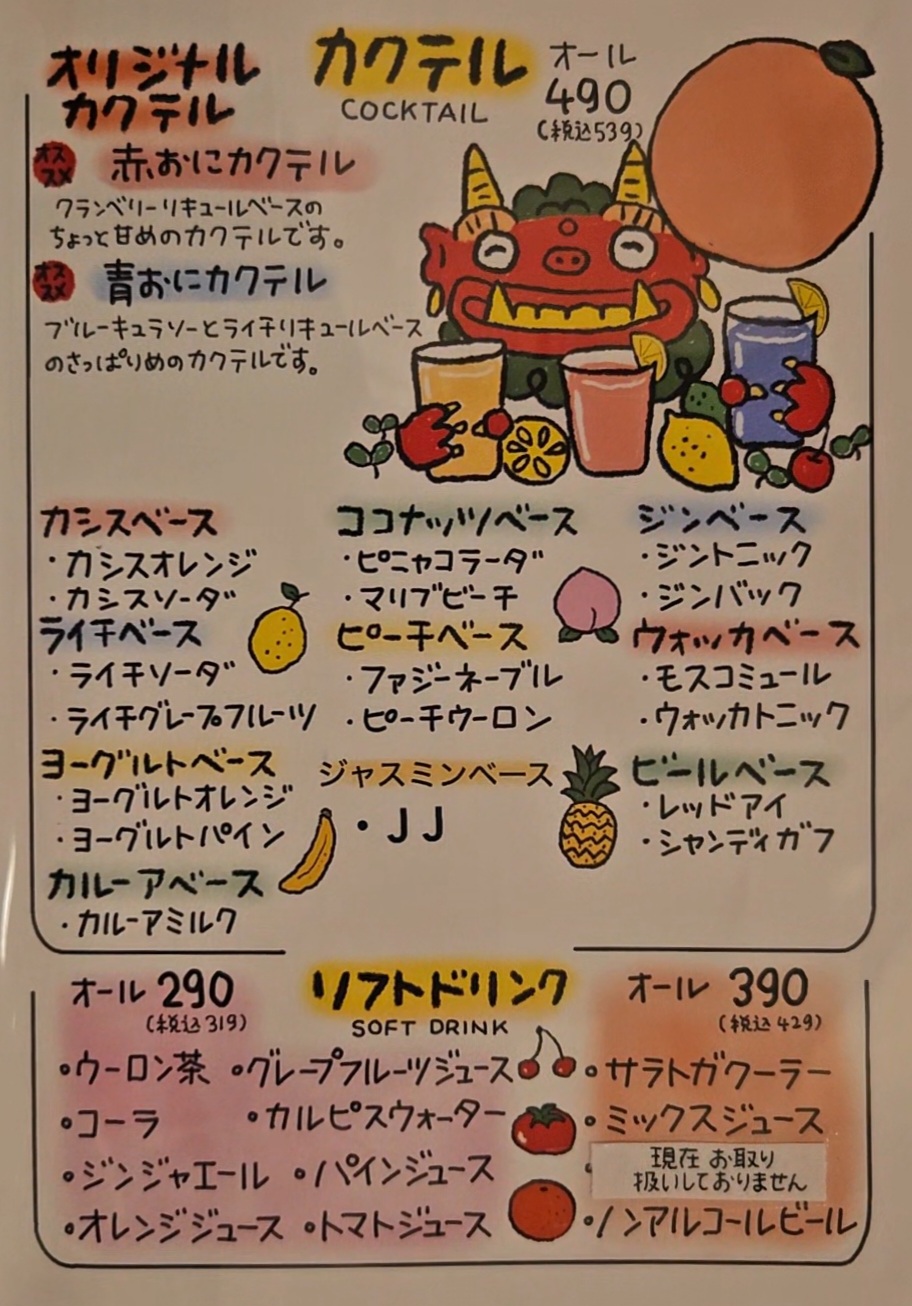 オリジナル
カクテル
カクテル
COCKTAIL
オール
490
(税込539)
オススメ
赤おにカクテル
クランベリーリキュールベースの
ちょっと甘めのカクテルです。
オススメ
青おにカクテル
ブルーキュラソーとライチリキュールベース
のさっぱりめのカクテルです。
カシスベース
・カシスオレンジ
・カシスソーダ
ライチベース
・ライチソーダ
・ライチグレープフルーツ
ヨーグルトベース
・ヨーグルトオレンジ
・ヨーグルトパイン
カルーアベース
・カルーアミルク
ココナッツベース
・ピニャコラーダ
・マリブピーチ
ピーチベース
・ファジーネーブル
・ピーチウーロン
ジャスミンベース
・JJ
ジンベース
・ジントニック
・ジンバック
ウォッカベース
・モスコミュール
・ウォッカトニック
ビールベース
・レッドアイ
・シャンディガフ
ソフトドリンク
SOFT DRINK
オール 290
(税込319)
・ウーロン茶
・グレープフルーツジュース
・コーラ
・カルピスウォーター
・ジンジャエール
・パインジュース
・オレンジジュース
・トマトジュース
オール 390
(税込429)
・サラトガクーラー
・ミックスジュース
現在 お取り
扱いしておりません
・ノンアルコールビール